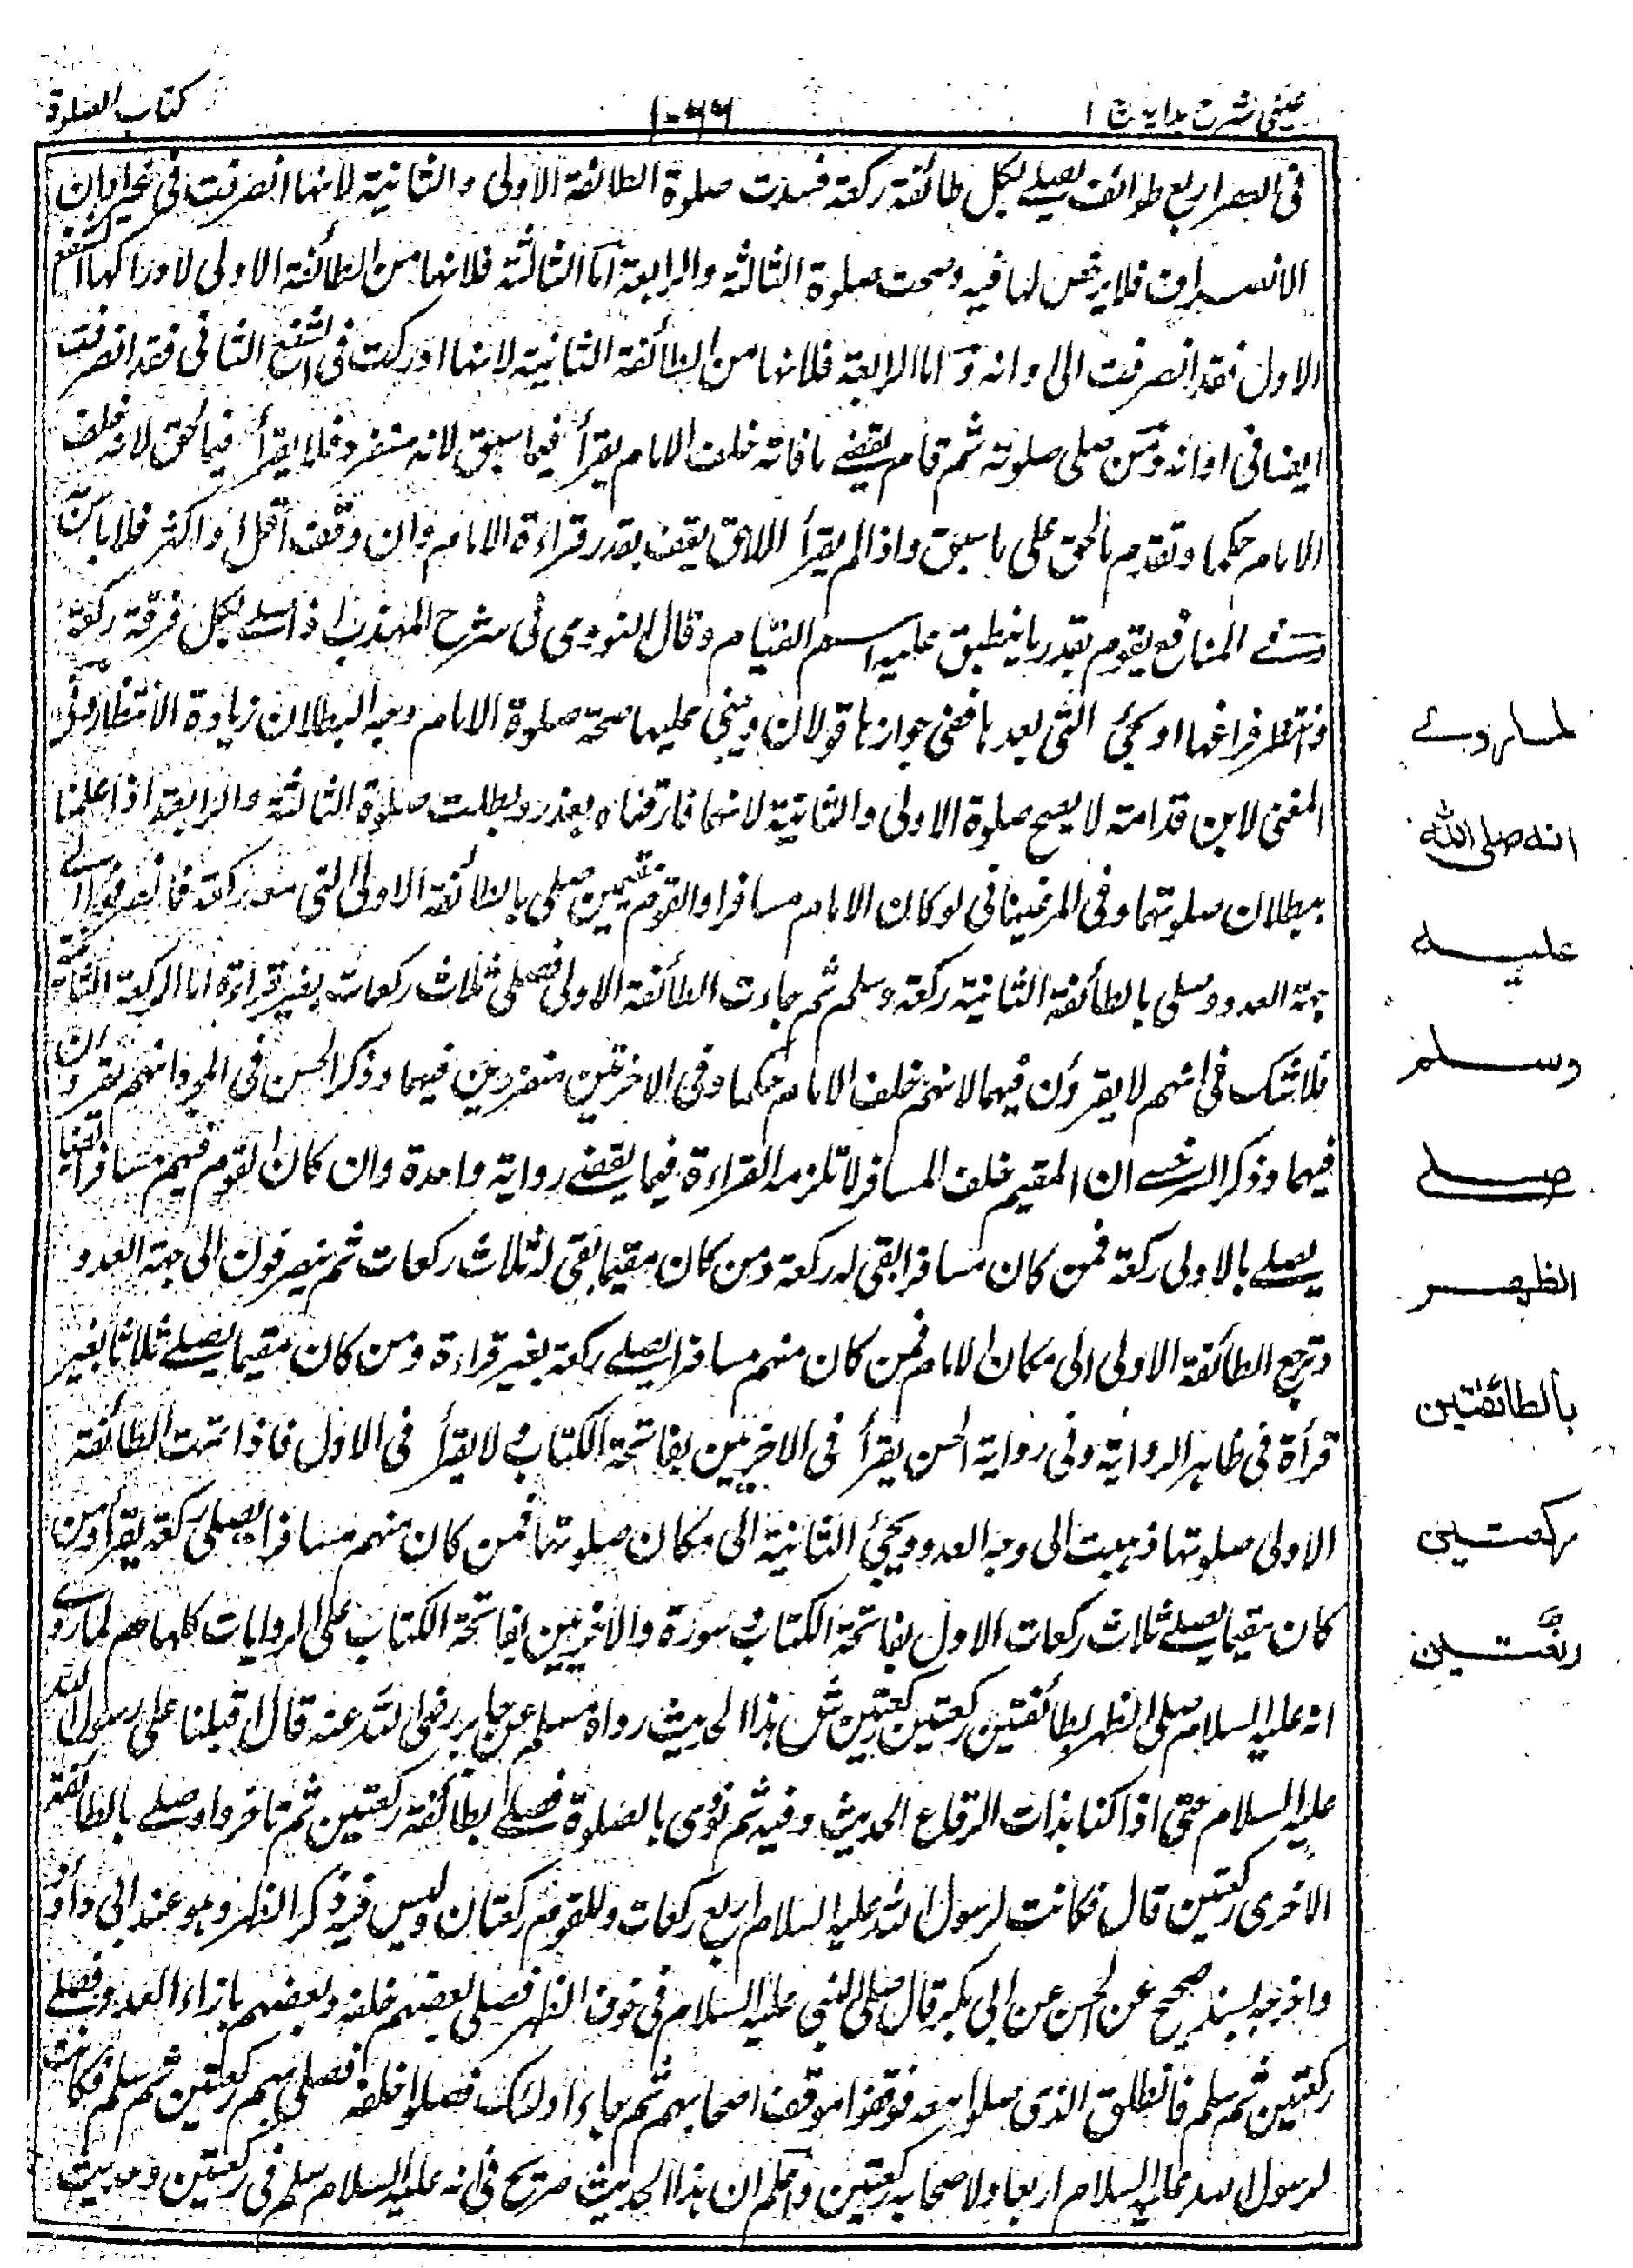 عینی شرح ہدایہ ج ۱
۱۰۶۶
کتاب الصلوة
فی العصر اربع طوائف یصلے بکل طائفة رکعة فسدت صلوة الطائفة الاولی والثانیة لانها انصرفت فی غیر اوان
الانصراف فلا یرخص لها فیه وصحت صلوة الثالثة والرابعة اما الثالثة فلانها من الطائفة الاولی لادراکها الشفع
الاول فقد انصرفت الی اوانه واما الرابعة فلانها من الطائفة الثانیة لانها ادرکت فی الشفع الثانی فقد انصرفت
ایضا فی اوانه ومن صلی صلوته ثم قام یقضے ما فاته خلف الامام یقرأ فیما سبق لانه منفرد فلا یقرأ فیما لحق لانه خلف
الامام حکما وتقدم ما لحق علی ما سبق واذا لم یقرأ اللاحق یقف بقدر قراءة الامام وان وقف اقل او اکثر فلا باس
وفے المنافع یقوم بقدر ما ینطبق علیه اسم القیام وقال النووی فی شرح المهذب اذا صلے بکل فرقة رکعة
وانتظر فراغها او یجئ التی بعدها ففی جوازها قولان ویبنی علیها صحة صلوة الامام وجه البطلان زیادة الانتظار وفی
المغنی لابن قدامة لا یصح صلوة الاولی والثانیة لانهما فارقتاه بعذر وبطلت صلوة الثالثة والرابعة اذا علمتا
ببطلان صلوتهما وفی المرغینانی لو کان الامام مسافرا والقوم مقیمین صلی بالطائفة الاولی التی معه رکعة فانصرفوا الے
جهة العدو وصلی بالطائفة الثانیة رکعة وسلم ثم جاءت الطائفة الاولی فصلی ثلاث رکعات بغیر قراءة اما الرکعة الثانیة
فلا شک فی انهم لا یقرؤن فیها لانهم خلف الامام حکما وفی الاخرتین منفردین فیهما وذکر الحسن فی المجرد انهم یقرؤن
فیهما وذکر السرخسے ان المقیم خلف المسافر لا تلزمه القراءة فیما یقضے روایة واحدة وان کان القوم فیهم مسافر ایضا
یصلے بالاولی رکعة فمن کان مسافرا بقی له رکعة ومن کان مقیما بقی له ثلاث رکعات ثم ینصرفون الی جهة العدو
وترجع الطائفة الاولی الی مکان الامام فمن کان منهم مسافرا یصلے رکعة بغیر قراءة ومن کان مقیما یصلے ثلاثا بغیر
قرأة فی ظاهر الروایة وفی روایة الحسن یقرأ فی الاخریین بفاتحة الکتاب لا یقرأ فی الاول فاذا تمت الطائفة
الاولی صلوتها ذهبت الی وجه العدو ویجئ الثانیة الی مکان صلوتها فمن کان منهم مسافرا یصلی رکعة یقرأ ومن
کان مقیما یصلے ثلاث رکعات الاول بفاتحة الکتاب وسورة والاخریین بفاتحة الکتاب علی الروایات کلها صم لما روے
انه علیه السلام صلی الظهر بطائفتین رکعتین رکعتین ش هذا الحدیث رواه مسلم عن جابر رضی الله عنه قال اقبلنا علی رسول الله
علیه السلام حتی اذا کنا بذات الرقاع الحدیث وفیه ثم نودی بالصلوة فصلے بطائفة رکعتین ثم تاخروا وصلے بالطائفة
الاخری رکعتین قال فکانت لرسول الله علیه السلام اربع رکعات وللقوم رکعتان ولیس فیه ذکر الظهر وهو عند ابی داؤد
واخرجه بسند صحیح عن الحسن عن ابی بکرة قال صلی النبی علیه السلام فی خوف الظهر فصلی بعضهم خلفه وبعضهم بازاء العدو فصلے
رکعتین ثم سلم فانطلق الذی صلوا معه فوقفوا موقف اصحابهم ثم جاء اولئک فصلوا خلفه فصلی بهم رکعتین ثم سلم فکانت
لرسول الله علیه السلام اربعا ولاصحابه رکعتین واعلم ان هذا الحدیث صریح فی انه علیه السلام سلم فی رکعتین وحدیث
لما روے
انه صلی الله
علیه
وسلم
صلے
الظهر
بالطائفتین
رکعتین
رکعتین